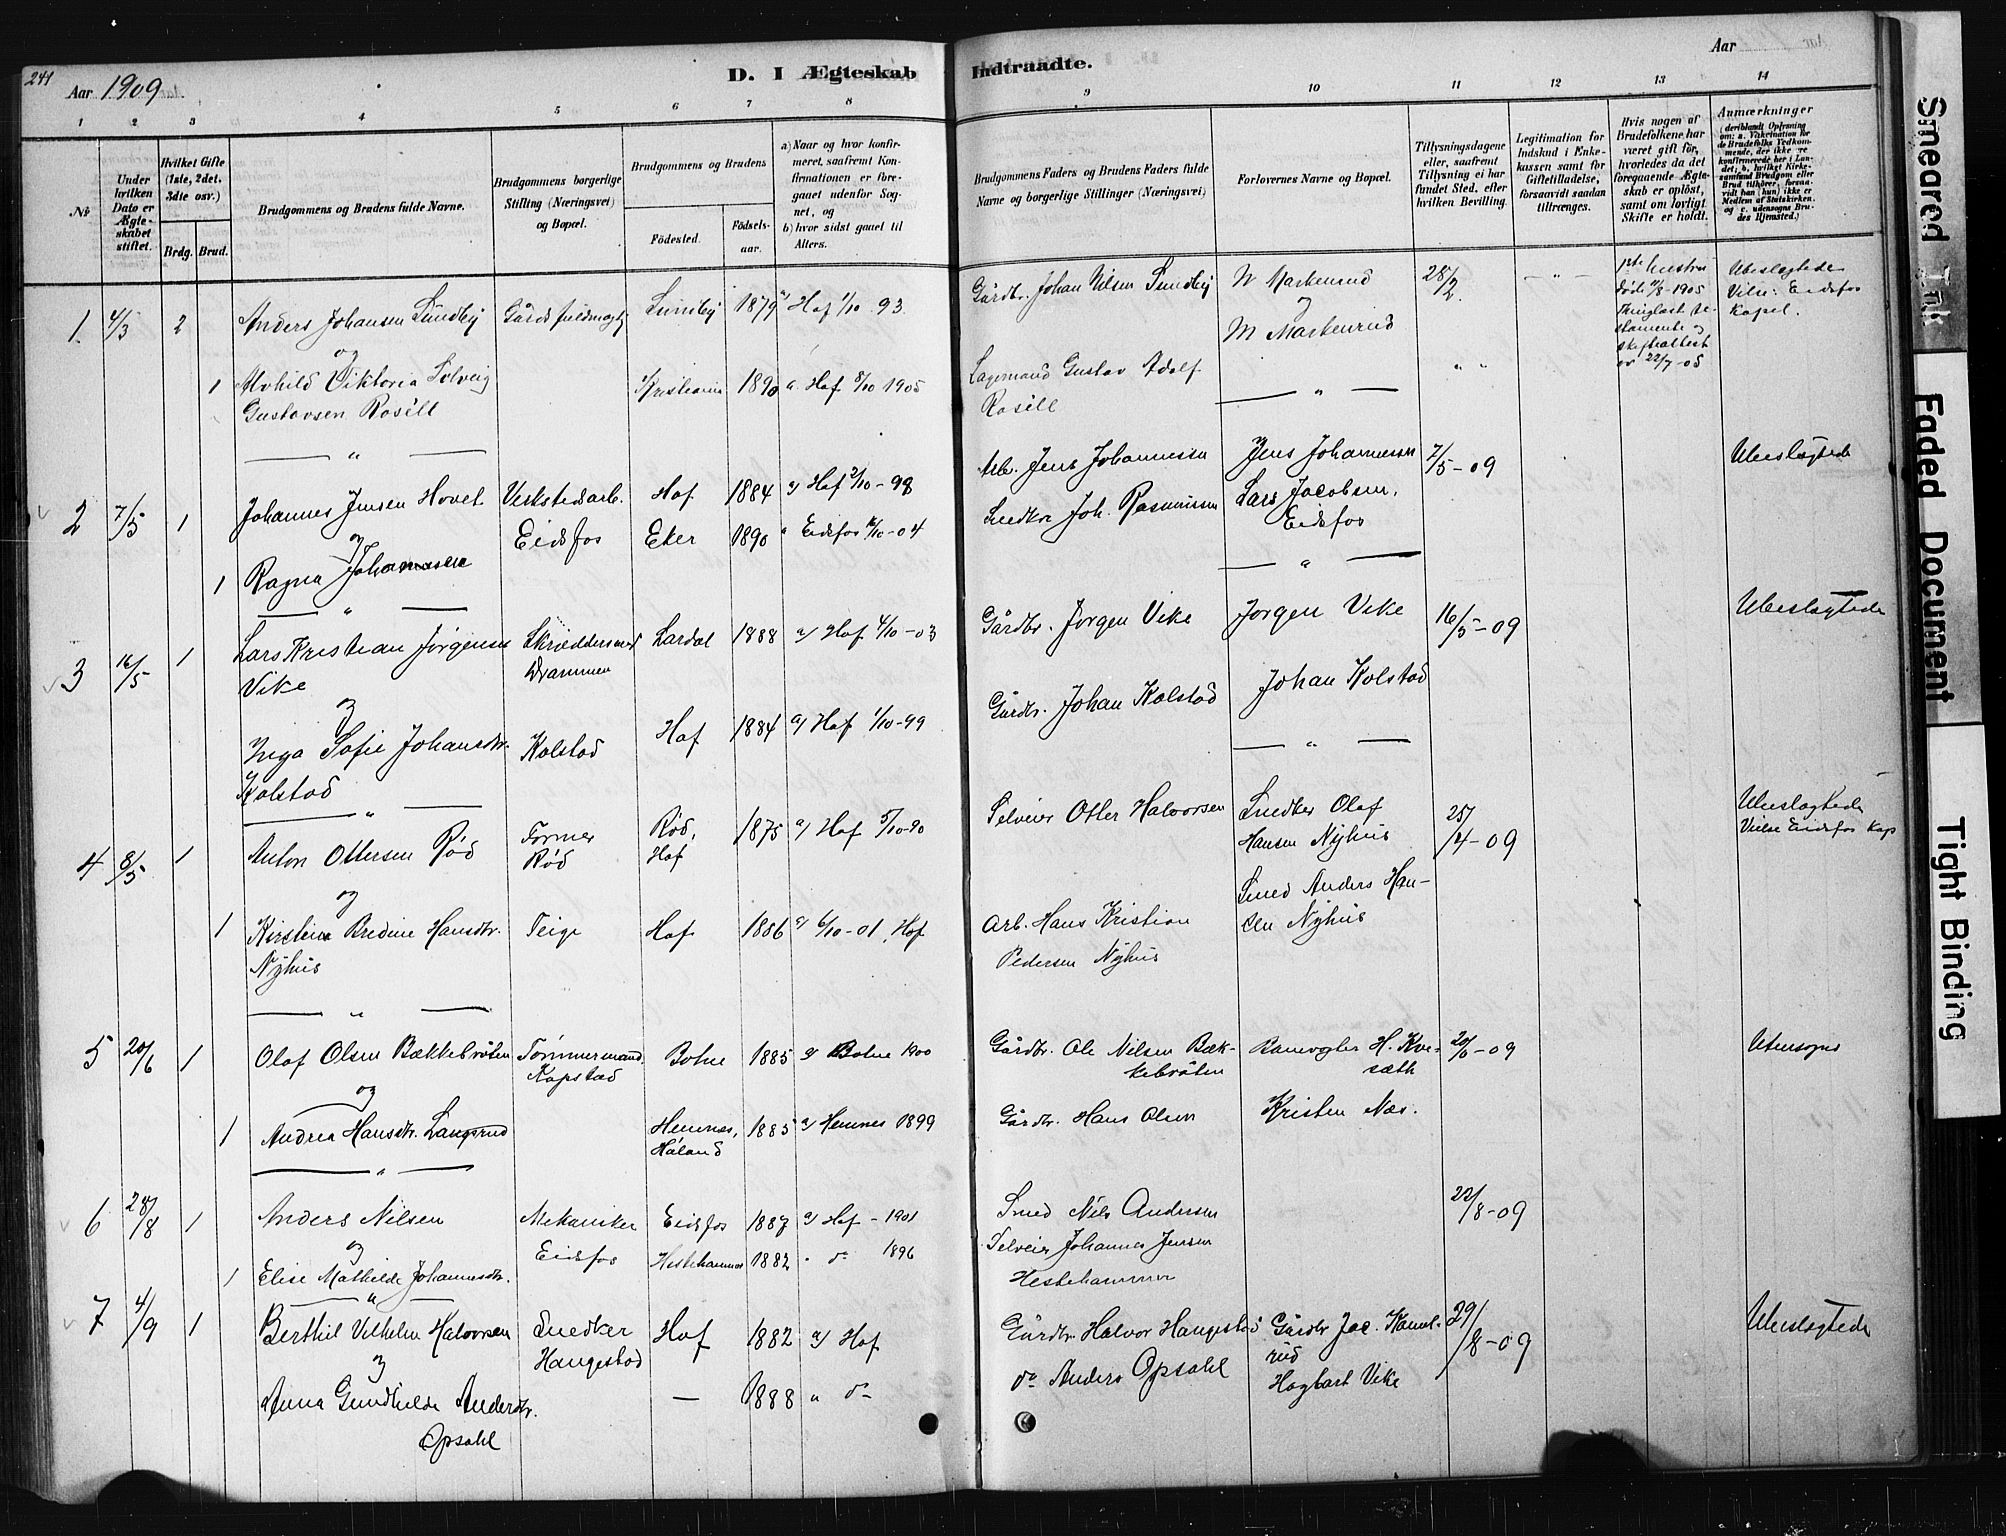 241
Aar 1909
D. I Ægteskab
Indtraadte.
Aar
1 2 3 4 5 6 7 8
9 10 11 12 13 14
No
Under hvilken Dato er Ægteskabet stiftet.
Hvilket Gifte (1ste, 2det. 3die osv.)
Brdg. Brud.
Brudgommens og Brudens fulde Navne.
Brudgommens borgerlige Stilling (Næringsvei) og Bopæl.
Brudgommens og Brudens
Födested.
Födsels-aar.
a) Naar og hvor konfirmeret, saafremt Konfirmationen er foregaaet udenfor Sognet, og
b) hvor sidst gaaet til Alters.
Brudgommens Faders og Brudens Faders fulde Navne og borgerlige Stillinger (Næringsvei)
Forlovernes Navne og Bopæl.
Tillysningsdagene eller, saafremt Tillysning ei har fundet Sted, efter hvilken Bevilling.
Legitimation for Indskud i Enkekassen samt for Giftetilladelse, forsaavidt saadan tiltrænges.
Hvis nogen af Brudefolkene har været gift för, hvorledes da det foregaaende Ægteskab er oplöst, samt om lovligt Skifte er holdt.
Anmærkninger
1. 4/3 2 Anders Johansen Sundby Gårdsfuldmægtig Sundby 1879 a/ Hof 1/10 93
Gårdbr. Johan Nilsen Sundby N Markerud 28/2. 1ste hustru død 11/8-1905 Ubeslægtede
og
og M Markerud
Eidsfos Kapel.
1 Viktoria Solveig Kristiania 1890 a Hof 8/10 1905
Gustavsen Rosèll
Gustav Adolf Rosèll
skifteattest av 22/7-05
2 7/5 1 Johannes Jensen Hovet Verkstedsarb. Hof 1884 a/ Hof 2/10-98
Arb. Jens Johannessen Jens Johannessen 7/5-09 Ubeslægtede
og Eidsfos Eker 1890 " Eidsfos 16/10-04
Snedker Joh. Rasmussen Lars Jacobsen, Eidsfos
1 Ragna Johannesen
3 16/5 1 Lars Kristian Jørgensen Vike Drammen Lardal 1888 a/ Hof 4/10-03
Gårdbr. Jørgen Vike Jørgen Vike 16/5-09 Ubeslægtede
og
Inga Sofie Johansdtr. Kolstad Kolstad Hof 1884 a/ Hof 1/10-99
Gårdbr. Johan Kolstad Johan Kolstad
4 8/5 1 Anton Ottersen Rød Former Rød Rød, Hof 1875 a/ Hof 5/10-90
Selveier Otter Halvorsen Snedker Olaf Hansen Nyhus 25/4-09 Ubeslægtede
Vielse Eidsfos Kap
og
1 Kirstine Bredine Hansdtr. Nyhus Teige Hof 1886 a/ 6/10-01, Hof
Arb. Hans Kristian Pedersen Nyhus Smed Anders Hansen Nyhus
5 20/6 1 Olaf Olsen Bækkebråten Tømmermand Kopstad Botne 1885 a/ Botne 1900
Gårdbr. Ole Nilsen Bækkebråten H. Kvesæth 20/6-09 Utensogns
og
1 Andrea Hansdtr. Langsrud Hemnes, Høland 1885 a/ Hemnes 1899
Gårdbr. Hans Olsen Kristen Næs.
6 28/8 1 Anders Nilsen Mekaniker Eidsfos 1887 a/ Hof - 1901
Smed Nils Andersen 22/8-09
og Eidsfos
1 Elise Mathilde Johannesdtr. Hestehammer 1882 " do 1896
Selveier Johannes Jensen Hestehammer
7 4/9 1 Berthil Vilhelm Halvorsen Snedker Haugestad Hof 1882 a/ Hof
Gårdbr. Halvor Haugestad Gårdbr Jac. 29/8-09 Ubeslægtede
og
Anna Gundhilde Andersdtr. Opsahl — 1888 " do
do Anders Opsahl Hagbart Vike
Smeared Ink
Faded Document
Tight Binding